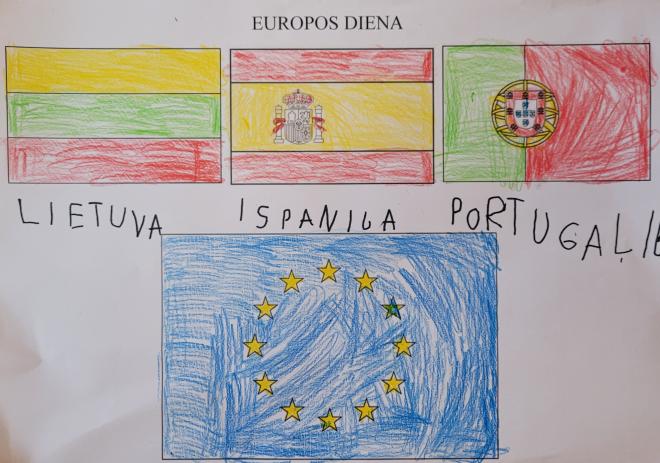 EUROPOS DIENA
LIETUVA ISPANIJA